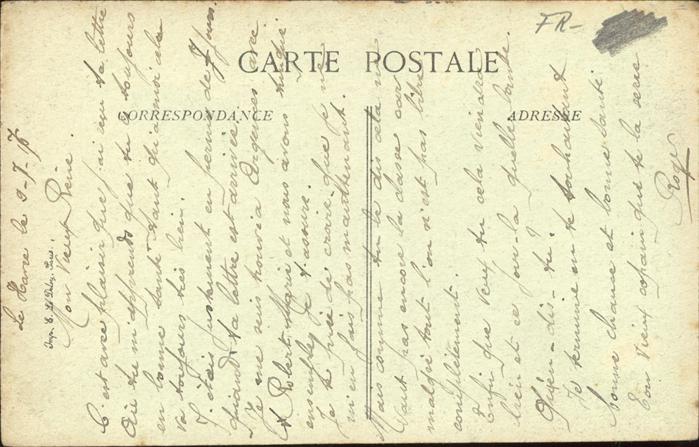 FR-
CARTE POSTALE
CORRESPONDANCE
ADRESSE
Le Havre le
Mon Vieux René.
C'est avec plaisir que j'ai eu ta lettre
Où tu m'apprends que tu es toujours
en bonne santé tant qu'a moi cela
va toujours très bien.
J'étais justement en perme de 7 jours
quand ta lettre est arrivée
Je me suis trouvé a Argences avec
Robert Marie et nous avons
ensemble je t'assure.
Je te prie de croire que je
m'en fais pas maintenant.
Mais comme tu le dis cela ne
vaut pas encore la classe car
malgré tout l'on n'est pas libre
complètement
Enfin que veux tu cela viendra
bien et ce jour-la quelle cuite.
Qu'en-dis-tu.
Je termine en te souhaitant
bonne chance et bonne santé
Ton vieux copain qui te la serre
Roger